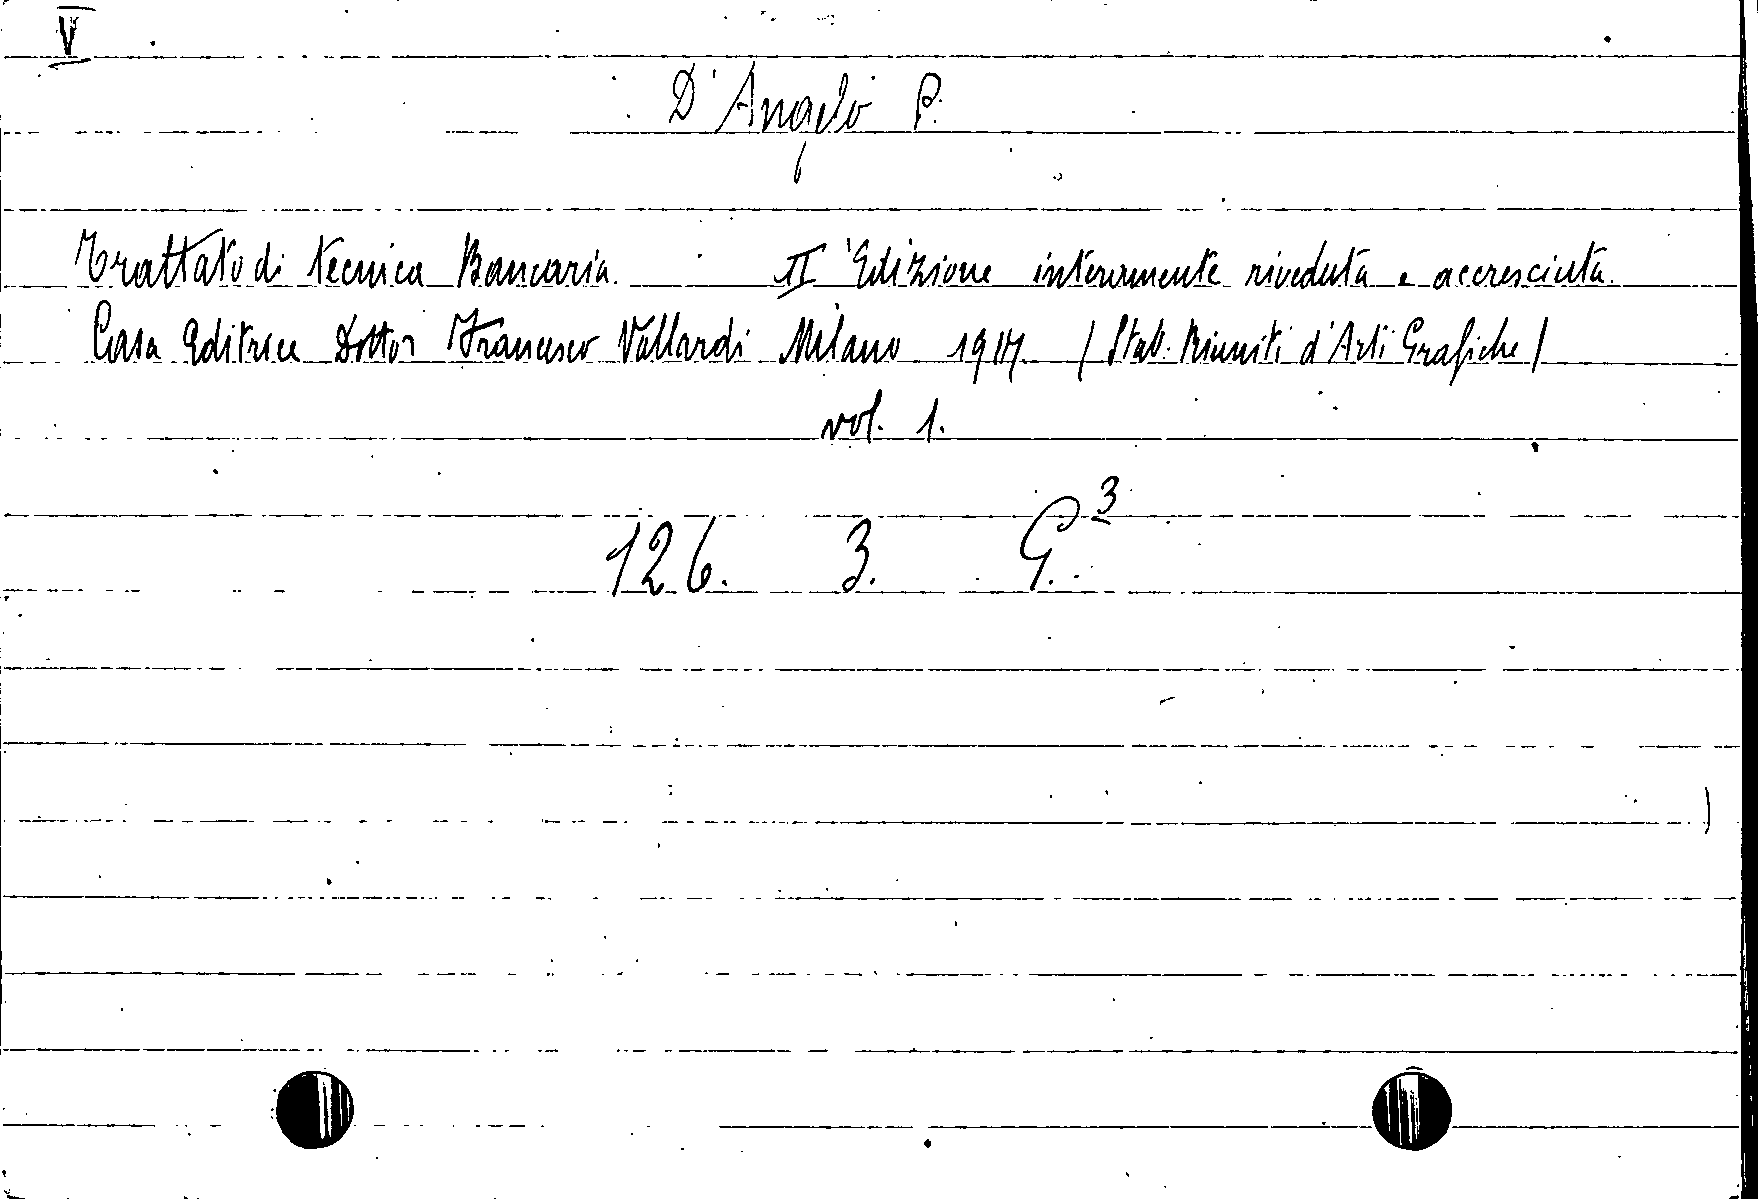 V
D'Angelo P.
Trattato di tecnica Bancaria. II Edizione interamente riveduta e accresciuta.
Casa Editrice Dottor Francesco Vallardi Milano / Stab. Riuniti d'Arti Grafiche /
vol. 1.
126. 3. G.3